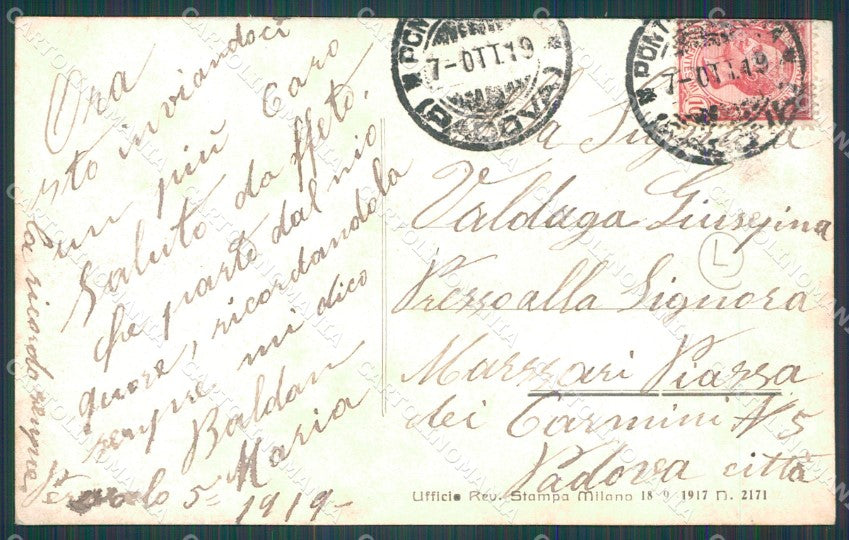 Ora
sto inviandoci
un più Caro
Saluto da ffeto.
che parte dal mio
quore, ricordandola
sempre mi dico
Baldan
Maria
5 1919-
la ricordo sempre
PONT
7-OTT.19
(PADOVA)
PONT
7-OTT.19
La Signora
Valduga Giusepina
Pressoalla Signora
Marzzari Piazza
dei Carmini N 5
Padova città
L
Ufficio Rev. Stampa Milano 18 9 1917 n. 2171
CARTOLINOMANIA